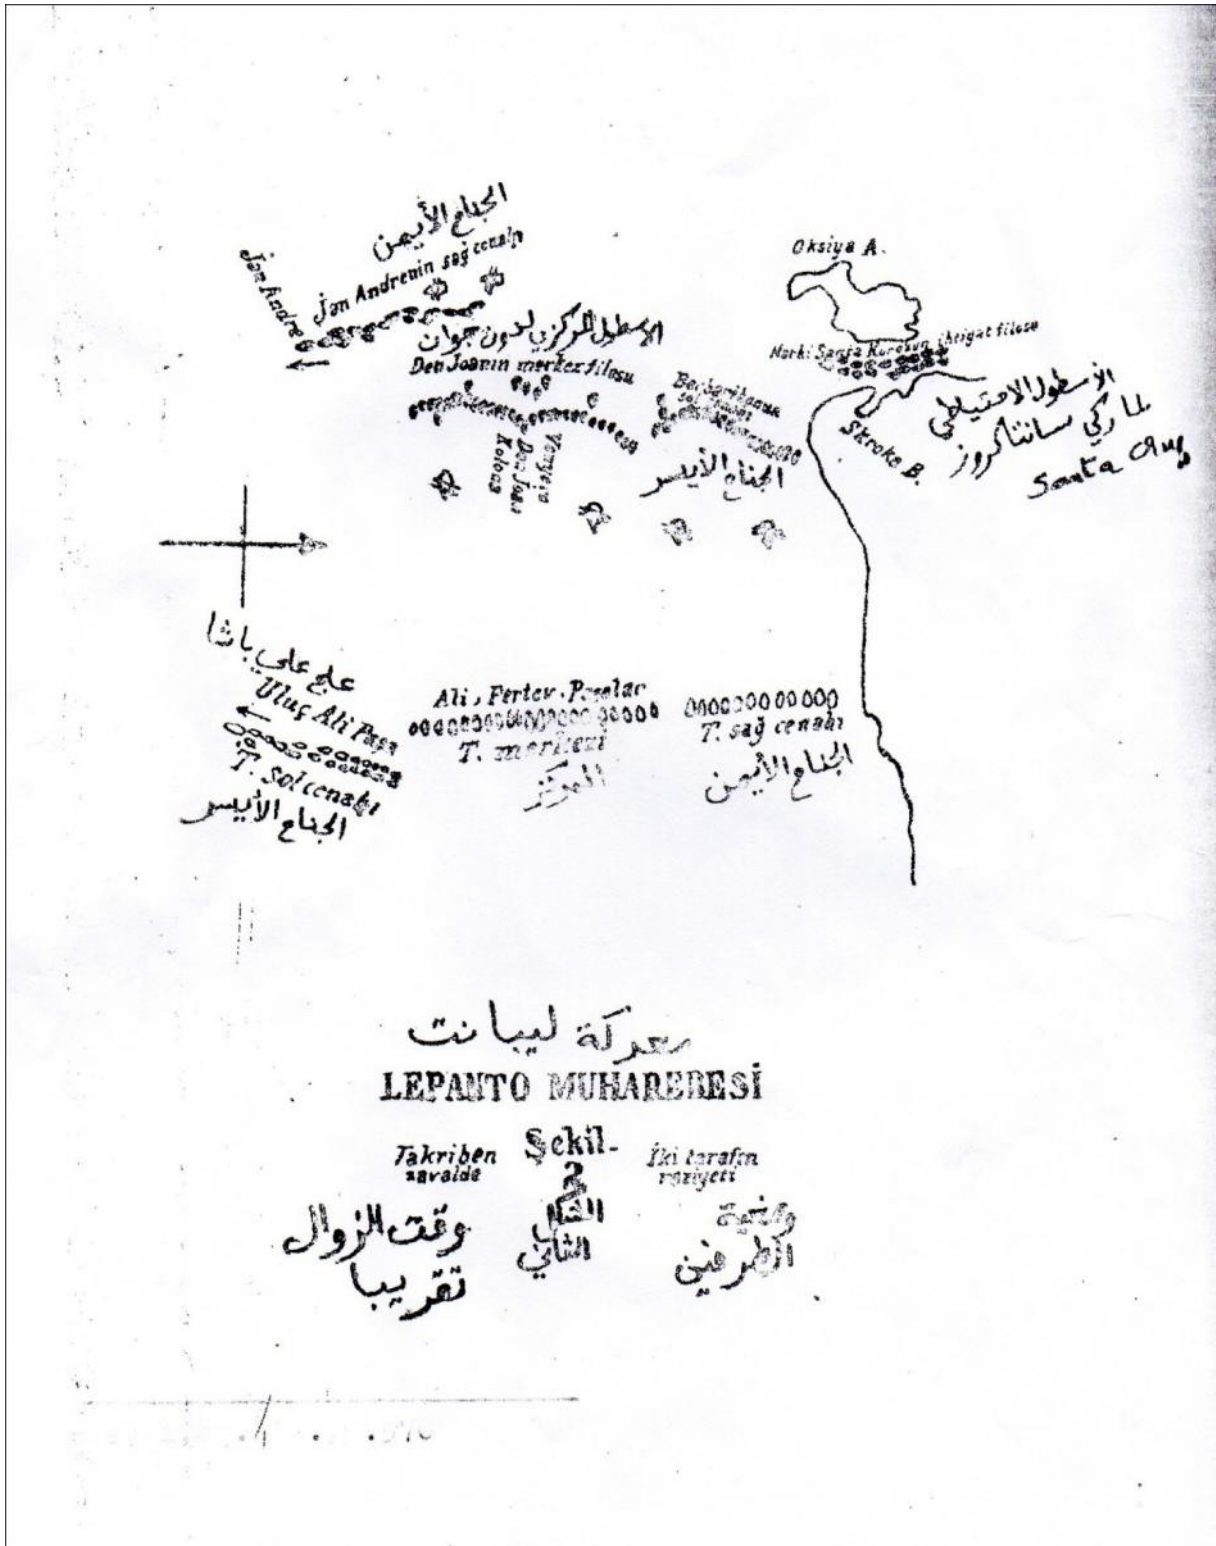 الجناح الأيمن
Jan Andre
Jan Andrenin sağ cenahı
Oksiya A.
الاسطول المركزي لدون جوان
Den Joanın merkez filosu
Marki Santa Kurosun ihtiyat filosu
الأسطول الاحتياطي
لماركي سانتاكروز
Santa Cruz
Skroke B.
Venyero
Don Joan
Kolona
الجناح الأيسر
علج علي باشا
Uluç Ali Paşa
T. sol cenahı
الجناح الأيسر
Ali, Pertev Paşalar
T. merkezi
المركز
T. sağ cenahı
الجناح الأيمن
معركة ليبانت
LEPANTO MUHAREBESİ
Şekil-
2
Takriben
zavalde
İki tarafın
vaziyeti
وقت الزوال
تقريبا
الشكل
الثاني
وضعية
الطرفين